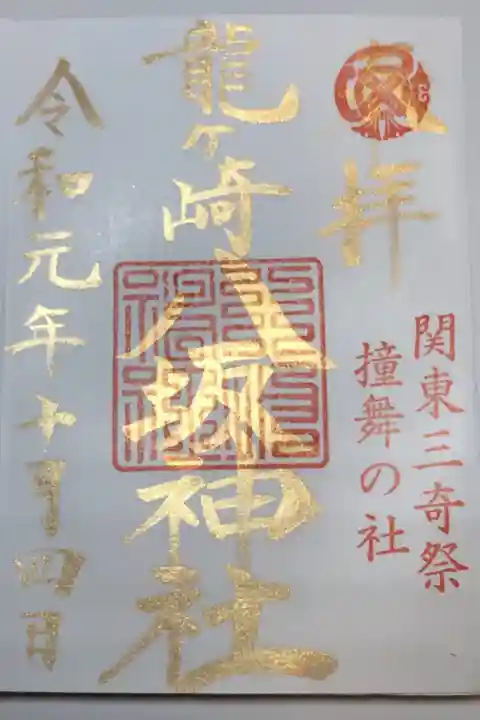 奉拝
関東三奇祭
撞舞の社
龍ヶ崎八坂神社
令和元年十月四日